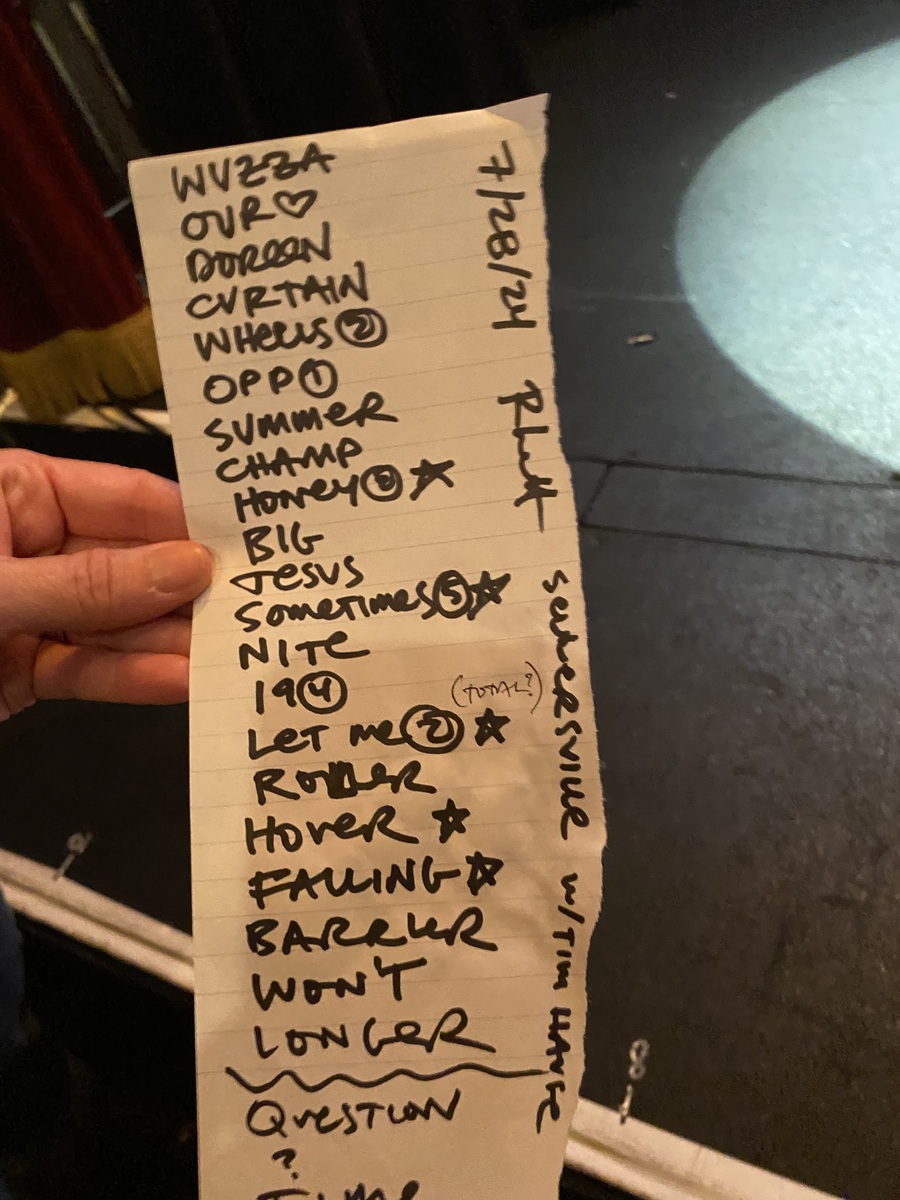 WUZZA
OUR ♡
DOREEN
CURTAIN
WHEELS ②
OPP ①
SUMMER
CHAMP
HONEY ③ ☆
BIG
JESUS
SOMETIMES ⑤ ☆
NITE
19 ④
(TOTAL?)
LET ME ② ☆
ROLLER
HOVER ☆
FALLING ☆
BARRIER
WON'T
LONGER
QUESTION
?
TIME
7/28/24 Rhett sellersville w/TIM HAUSE
8